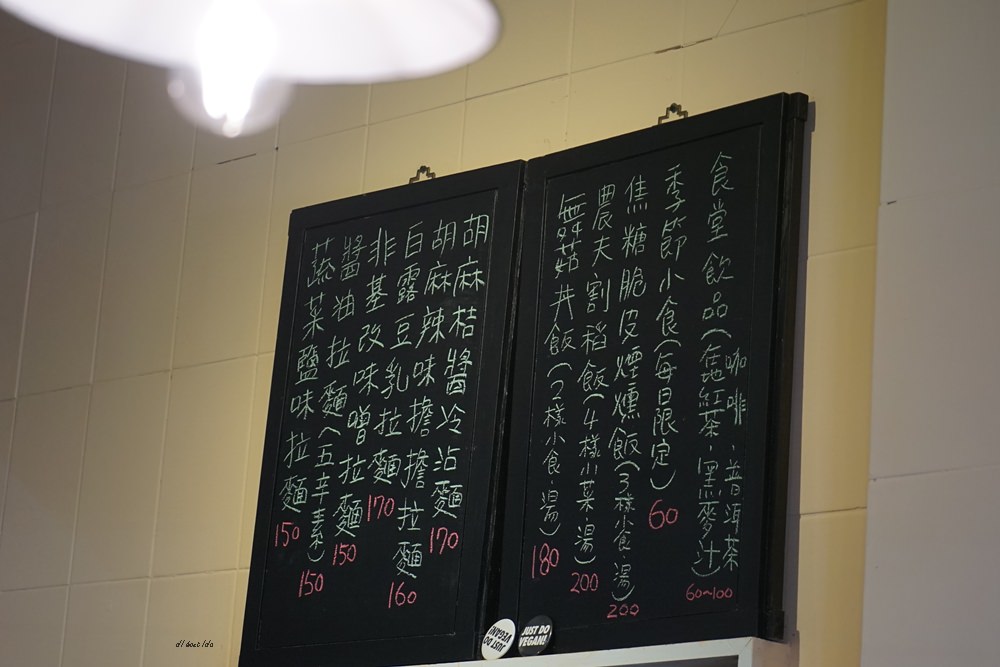 食堂飲品(咖啡、普洱茶
伯爵紅茶、黑麥汁)
60~100
季節小食(每日限定)
60
焦糖脆皮煙燻飯(3樣小食、湯)
200
農夫割稻飯(4樣小菜、湯)
200
舞菇丼飯(2樣小食、湯)
180
胡麻桔醬冷沾麵
170
胡麻辣味擔擔拉麵
160
白露豆乳拉麵
170
非基改味噌拉麵
150
醬油拉麵(五辛素)
150
蔬菜鹽味拉麵
150
JUST DO
VEGAN!
JUST DO
VEGAN!